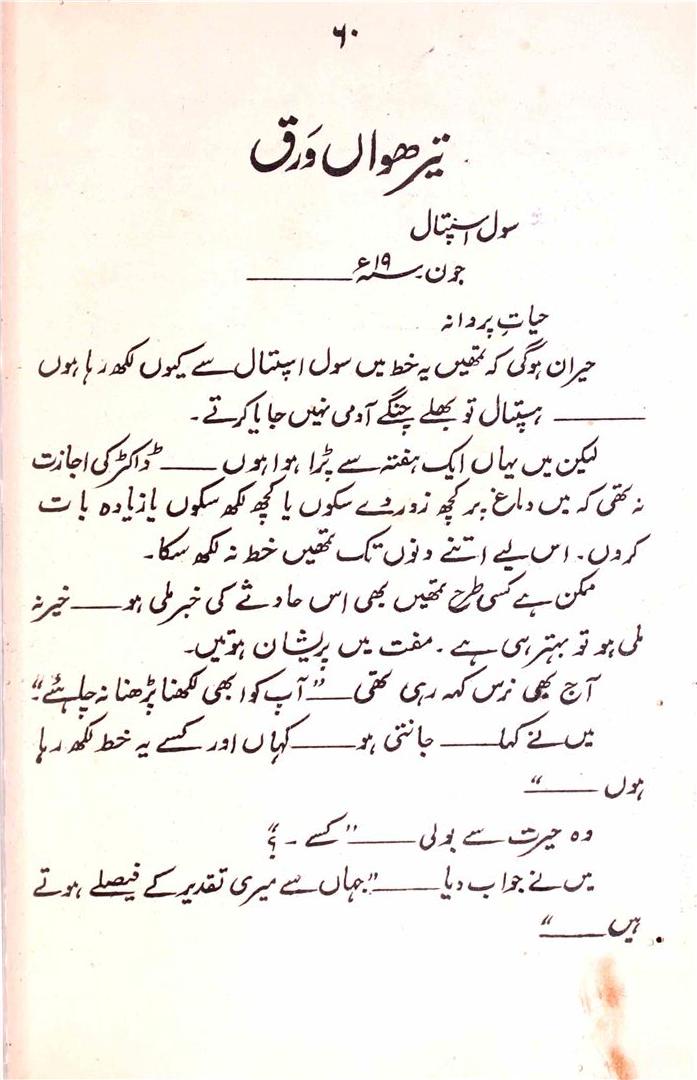 ۶۰
تیرھواں وَرق
سول اسپتال
جون ۔ سنہ ۱۹ء ـــــــــ
حیاتِ پروانہ
حیران ہوگی کہ تمھیں یہ خط میں سول اسپتال سے کیوں لکھ رہا ہوں
ـــــــــ ہسپتال تو بھلے چنگے آدمی نہیں جایا کرتے۔
لیکن میں یہاں ایک ہفتہ سے پڑا ہوا ہوں ـــــــــ ڈاکٹر کی اجازت
نہ تھی کہ میں دماغ پر کچھ زور دے سکوں یا کچھ لکھ سکوں یا زیادہ بات
کروں۔ اس لیے اتنے دنوں تک تمھیں خط نہ لکھ سکا۔
ممکن ہے کسی طرح تمھیں بھی اس حادثے کی خبر ملی ہو ـــــــــ خیر نہ
ملی ہو تو بہتر ہی ہے۔ مفت میں پریشان ہوتیں۔
آج بھی نرس کہہ رہی تھی ـــــــــ ”آپ کو ابھی لکھنا پڑھنا نہ چاہیئے“
میں نے کہا ـــــــــ جانتی ہو ـــــــــ کہاں اور کسے یہ خط لکھ رہا
ہوں ـــــــــ “
وہ حیرت سے بولی ـــــــــ ”کسے ۔ ؟“
میں نے جواب دیا ـــــــــ ”جہاں سے میری تقدیر کے فیصلے ہوتے
ہیں ـــــــــ “